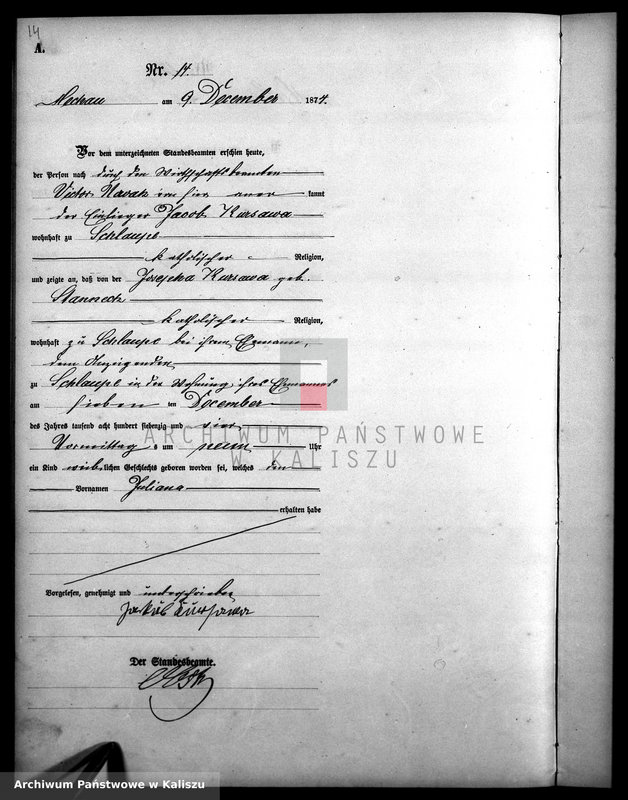 14
A.
Nr. 14.
Mechau am 9. December 1874.
Vor dem unterzeichneten Standesbeamten erschien heute,
der Person nach durch den Wirthschaftsbeamten
Victor Nowak kannt
der Einlieger Jacob Kursawa
wohnhaft zu Schlaupe
katholischer Religion,
und zeigte an, daß von der Josepha Kursawa geb.
Stannech
katholischer Religion,
wohnhaft zu Schlaupe bei ihrem Ehemann,
dem Anzeigenden
zu Schlaupe in der Wohnung ihres Ehemannes
am sieben ten December
des Jahres tausend acht hundert siebenzig und vier
Vormittag s um neun Uhr
ein Kind weiblichen Geschlechts geboren worden sei, welches den
Vornamen Juliana
erhalten habe
Vorgelesen, genehmigt und unterschrieben
Jakób Kursawa
Der Standesbeamte.
ARCHIWUM PAŃSTWOWE
W KALISZU
Archiwum Państwowe w Kaliszu